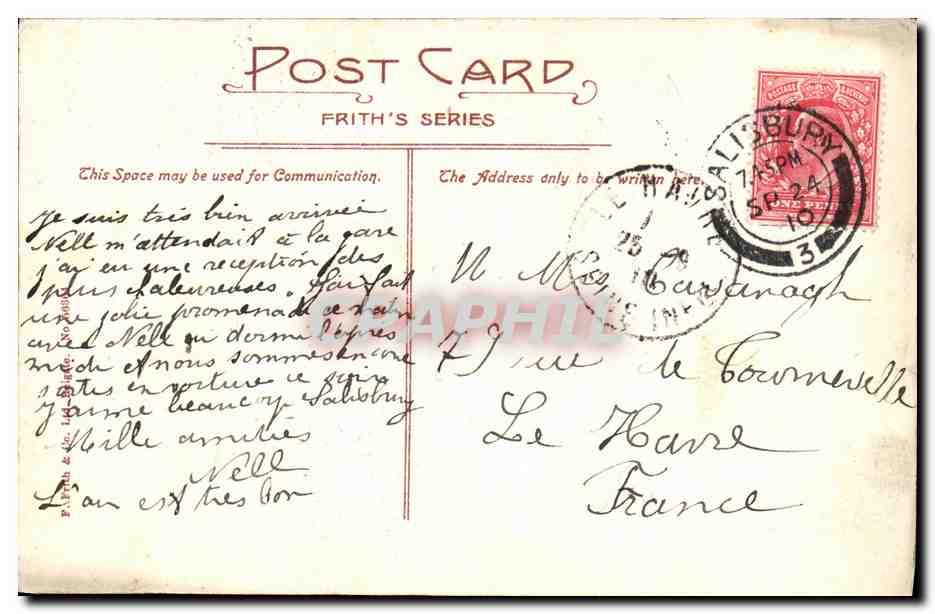 POST CARD
FRITH'S SERIES
This Space may be used for Communication.
The Address only to be written here.
POSTAGE & REVENUE
ONE PENNY
SALISBURY
7.45PM
SP 24
10
3
LE HAVRE
25 - 9
10
SEINE INFRE
Je suis très bien arrivée
Nell m'attendait à la gare
j'ai eu une réception des
plus chaleureuses. J'ai fait
une jolie promenade ce matin
avec Nell ai dormi l'après
midi et nous sommes encore
sorties en voiture ce soir
J'aime beaucoup Salisbury
Mille amitiés
Nell
L'air est très bon
M. Mes Cavanagh
79 rue de Tourneville
Le Havre
France
F. Frith & Co. Ltd. Reigate. No.
CPAPHIL